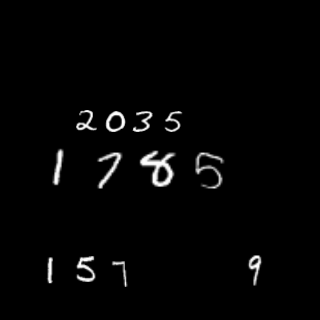 2035
1785
157 9